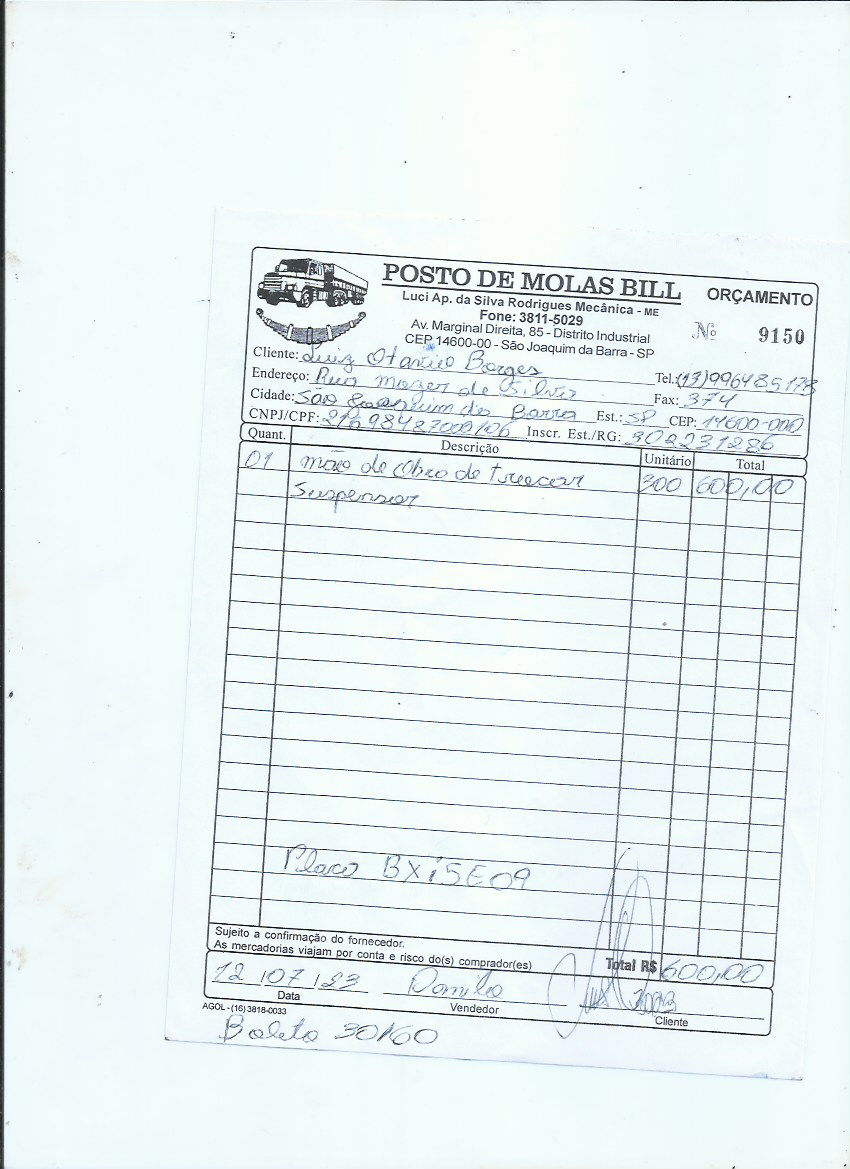 POSTO DE MOLAS BILL
ORÇAMENTO
Luci Ap. da Silva Rodrigues Mecânica - ME
Fone: 3811-5029
Nº 9150
Av. Marginal Direita, 85 - Distrito Industrial
CEP 14600-00 - São Joaquim da Barra - SP
Cliente: Luiz Otavio Borges
Tel.:
Endereço: Rui Mazer de Silvis
Fax: 374
Cidade: São Joaquim da Barra Est.: SP CEP: 14600-000
CNPJ/CPF: Inscr. Est./RG: 302231286
Quant. Descrição Unitário Total
01 mão de Obra de trocar 300 600,00
Suspensor
Placa BXi5E09
Sujeito a confirmação do fornecedor.
As mercadorias viajam por conta e risco do(s) comprador(es)
Total R$ 600,00
12/07/23 Danilo
Data Vendedor Cliente
AGOL - (16) 3818-0033
Boleto 30/60